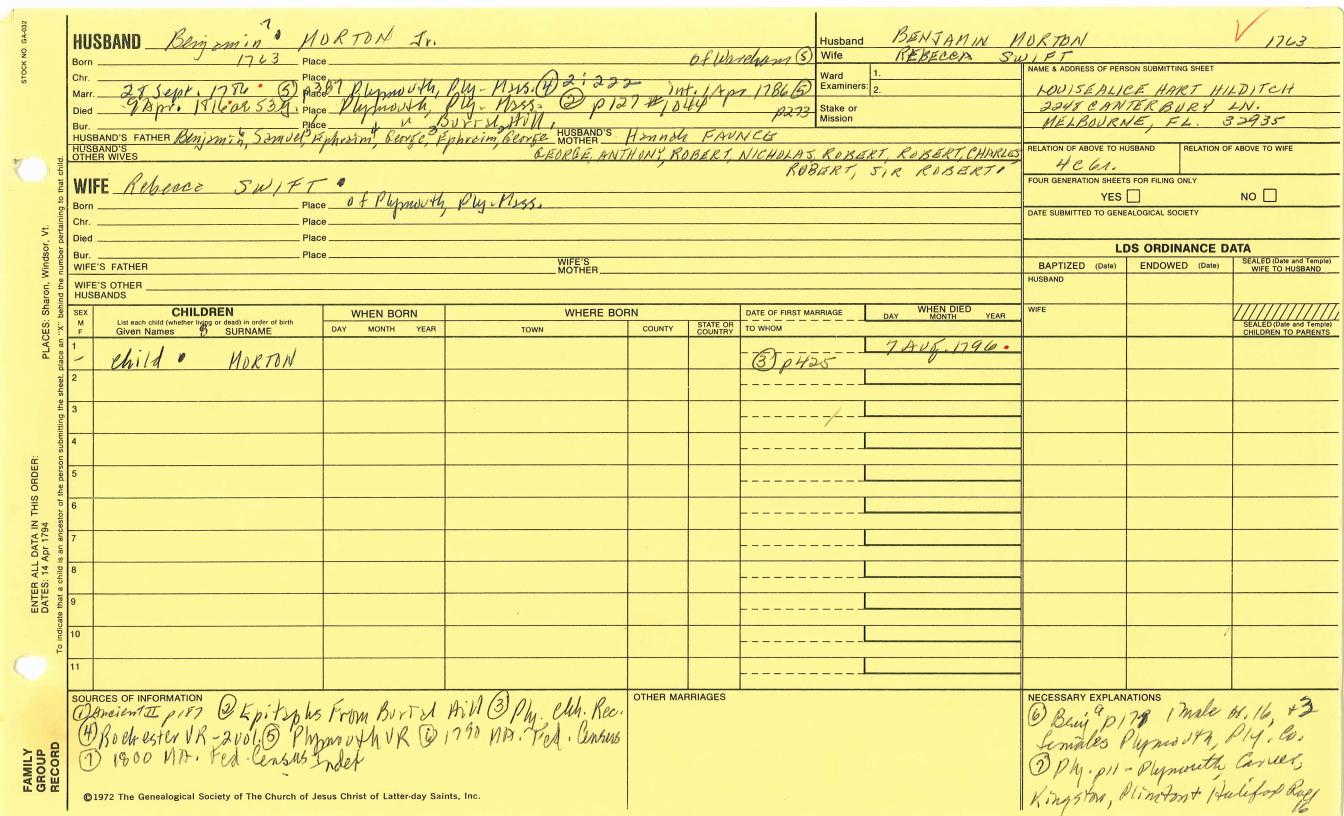 STOCK NO. GA-032
HUSBAND Benjamin 7 MORTON Jr.
Born 1763 Place of Wareham (5)
Chr. Place
Marr. 28 Sept. 1786 (5) p367 Place Plymouth, Ply-Mass. (4) 2:222 int. 1 Apr 1786 (5)
Died 9 Apr. 1816 ae 53y. Place Plymouth, Ply-Mass. (2) p127 #1044 p273
Bur. Place " Burial Hill,
HUSBAND'S FATHER Benjamin 6, Samuel 5, Ephraim 4, George 3, Ephraim 2, George HUSBAND'S MOTHER Hannah FAUNCE
HUSBAND'S OTHER WIVES GEORGE, ANTHONY, ROBERT, NICHOLAS, ROBERT, ROBERT, CHARLES
ROBERT, SIR ROBERT.
WIFE Rebecca SWIFT
Born Place of Plymouth, Ply-Mass.
Chr. Place
Died Place
Bur. Place
WIFE'S FATHER WIFE'S MOTHER
WIFE'S OTHER HUSBANDS
Husband BENJAMIN MORTON 1763
Wife REBECCA SWIFT
Ward Examiners: 1. 2.
Stake or Mission
NAME & ADDRESS OF PERSON SUBMITTING SHEET
LOUISEALICE HART HILDITCH
2248 CANTERBURY LN.
MELBOURNE, FL. 32935
RELATION OF ABOVE TO HUSBAND RELATION OF ABOVE TO WIFE
4c6r.
FOUR GENERATION SHEETS FOR FILING ONLY
YES NO
DATE SUBMITTED TO GENEALOGICAL SOCIETY
LDS ORDINANCE DATA
BAPTIZED (Date) ENDOWED (Date) SEALED (Date and Temple) WIFE TO HUSBAND
HUSBAND
WIFE
SEALED (Date and Temple) CHILDREN TO PARENTS
SEX M F CHILDREN WHEN BORN WHERE BORN DATE OF FIRST MARRIAGE WHEN DIED
List each child (whether living or dead) in order of birth
Given Names SURNAME DAY MONTH YEAR TOWN COUNTY STATE OR COUNTRY TO WHOM DAY MONTH YEAR
1 child MORTON (3) p425 7 AUG. 1796
2
3
4
5
6
7
8
9
10
11
PLACES: Sharon, Windsor, Vt.
ENTER ALL DATA IN THIS ORDER:
DATES: 14 Apr 1794
To indicate that a child is an ancestor of the person submitting the sheet, place an "X" behind the number pertaining to that child.
FAMILY GROUP RECORD
SOURCES OF INFORMATION
(1) Ancient II p187 (2) Epitaphs From Burial Hill (3) Ply. chh. Rec.
(4) Rochester VR-2vol. (5) Plymouth VR (6) 1790 MA. Fed. Census
(7) 1800 MA. Fed. Census Index
©1972 The Genealogical Society of The Church of Jesus Christ of Latter-day Saints, Inc.
OTHER MARRIAGES
NECESSARY EXPLANATIONS
(6) Benj p178 1 male ov. 16, +3
females Plymouth, Ply. Co.
(7) Ply. p11 - Plymouth, Carver,
Kingston, Plimton & Halifax
16